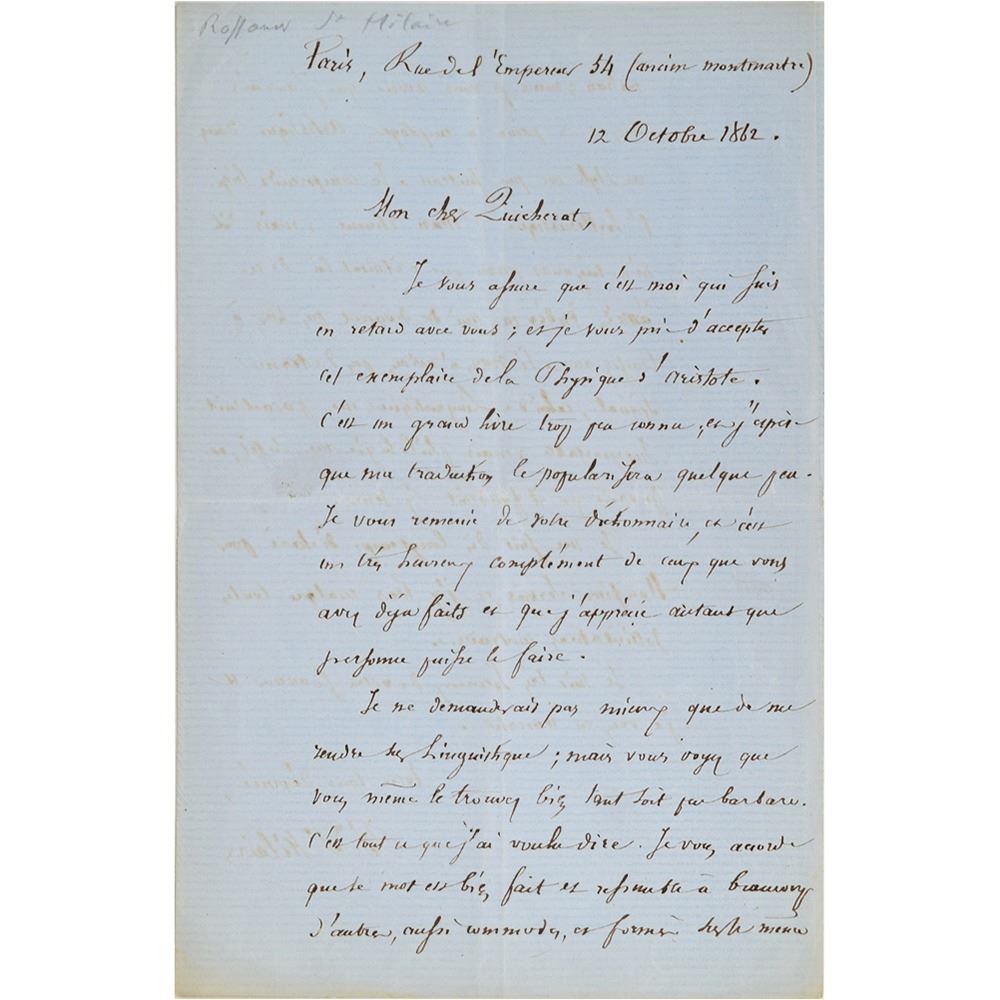 St Hilaire
Paris, Rue de l'Empereur 54 (ancien montmartre)
12 Octobre 1862.
Mon cher Quicherat,
Je vous assure que c'est moi qui suis
en retard avec vous ; et je vous prie d'accepter
cet exemplaire de la Physique d'Aristote.
C'est un grand livre trop peu connu, et j'espère
que ma traduction le popularisera quelque peu.
Je vous remercie de votre dictionnaire, et c'est
un très heureux complément de ceux que vous
avez déjà faits et que j'apprécie autant que
personne puisse le faire.
Je ne demanderais pas mieux que de me
rendre sur Linguistique ; mais vous voyez que
vous même le trouvez bien tant soit peu barbare.
C'est tout ce que j'ai voulu dire. Je vous accorde
que le mot est bien fait et ressemble à beaucoup
d'autres, aussi commodes, et formés sur le même